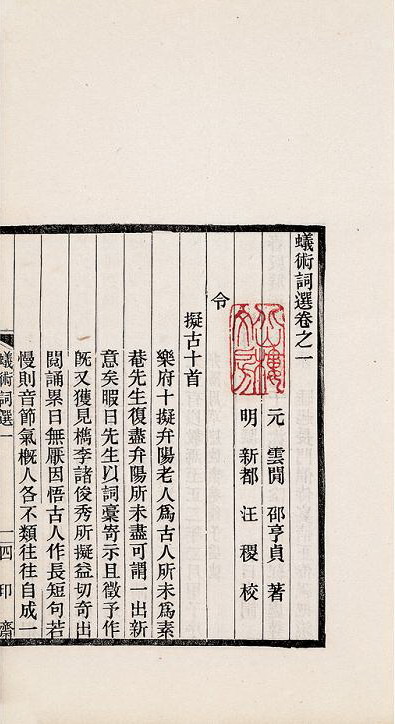 蟻術詞選卷之一
元 雲閒 邵亨貞 著
明 新都 汪稷 校
令
擬古十首
樂府十擬弁陽老人爲古人所未爲素
菴先生復盡弁陽所未盡可謂一出新
意矣暇日先生以詞稾寄示且徵予作
旣又獲見檇李諸俊秀所擬益切奇出
閱誦累日無厭因悟古人作長短句若
慢則音節氣槪人各不類往往自成一
蟻術詞選一 四印齋